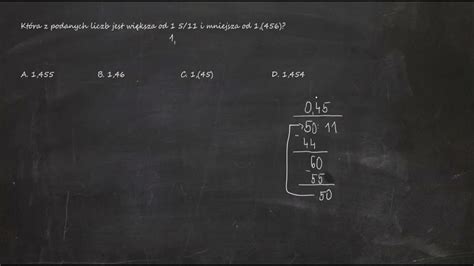 Która z podanych liczb jest większa od 1 5/11 i mniejsza od 1,(456)?
1,
A. 1,455 B. 1,46 C. 1,(45) D. 1,454
0,45
50 : 11
- 44
60
- 55
50